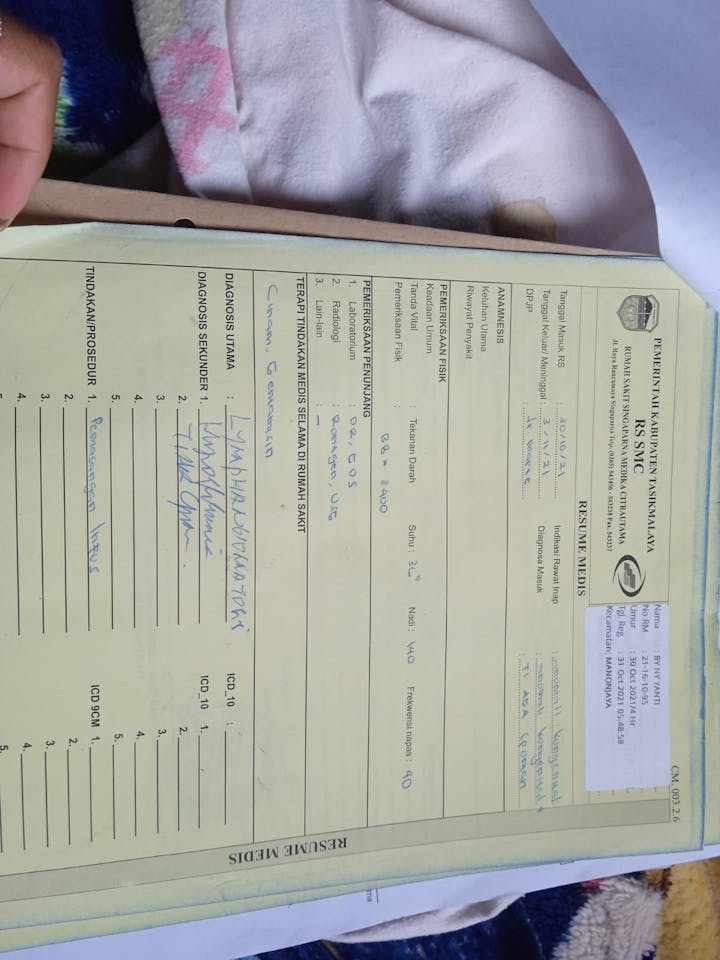 CM. 003.2.6
PEMERINTAH KABUPATEN TASIKMALAYA
RS SMC
RUMAH SAKIT SINGAPARNA MEDIKA CITRAUTAMA
Jl. Raya Rancamaya Singaparna Telp. (0265) 543456 - 543238 Fax. 543237
Nama : BY NY YANTI
No RM : 21-16-10-95
Umur : 30 Oct 2021/4 Hr
Tgl. Reg. : 31 Oct 2021 05:48:58
Kecamatan: MANONJAYA
RESUME MEDIS
Tanggal Masuk RS : 30/10/21 Indikasi Rawat Inap : kongenital
Tanggal Keluar/ Meninggal : 3/11/21 Diagnosa Masuk : kongenital +
DPJP : dr
ANAMNESIS
Keluhan Utama
Riwayat Penyakit
PEMERIKSAAN FISIK
Keadaan Umum
Tanda Vital : Tekanan Darah Suhu : 36° Nadi : 140 Frekwensi napas : 40
Pemeriksaan Fisik : BB = 2400
PEMERIKSAAN PENUNJANG
1. Laboratorium : DR, GDS
2. Radiologi : Rontgen, USG
3. Lain-lain : -
TERAPI TINDAKAN MEDIS SELAMA DI RUMAH SAKIT
DIAGNOSIS UTAMA : LYMPHANGIOMATOSIS ICD_10 :
DIAGNOSIS SEKUNDER 1. ICD_10 1.
2. 2.
3. 3.
4. 4.
5. 5.
TINDAKAN/PROSEDUR 1. Pemasangan Infus ICD 9CM 1.
2. 2.
3. 3.
4. 4.
5.
RESUME MEDIS